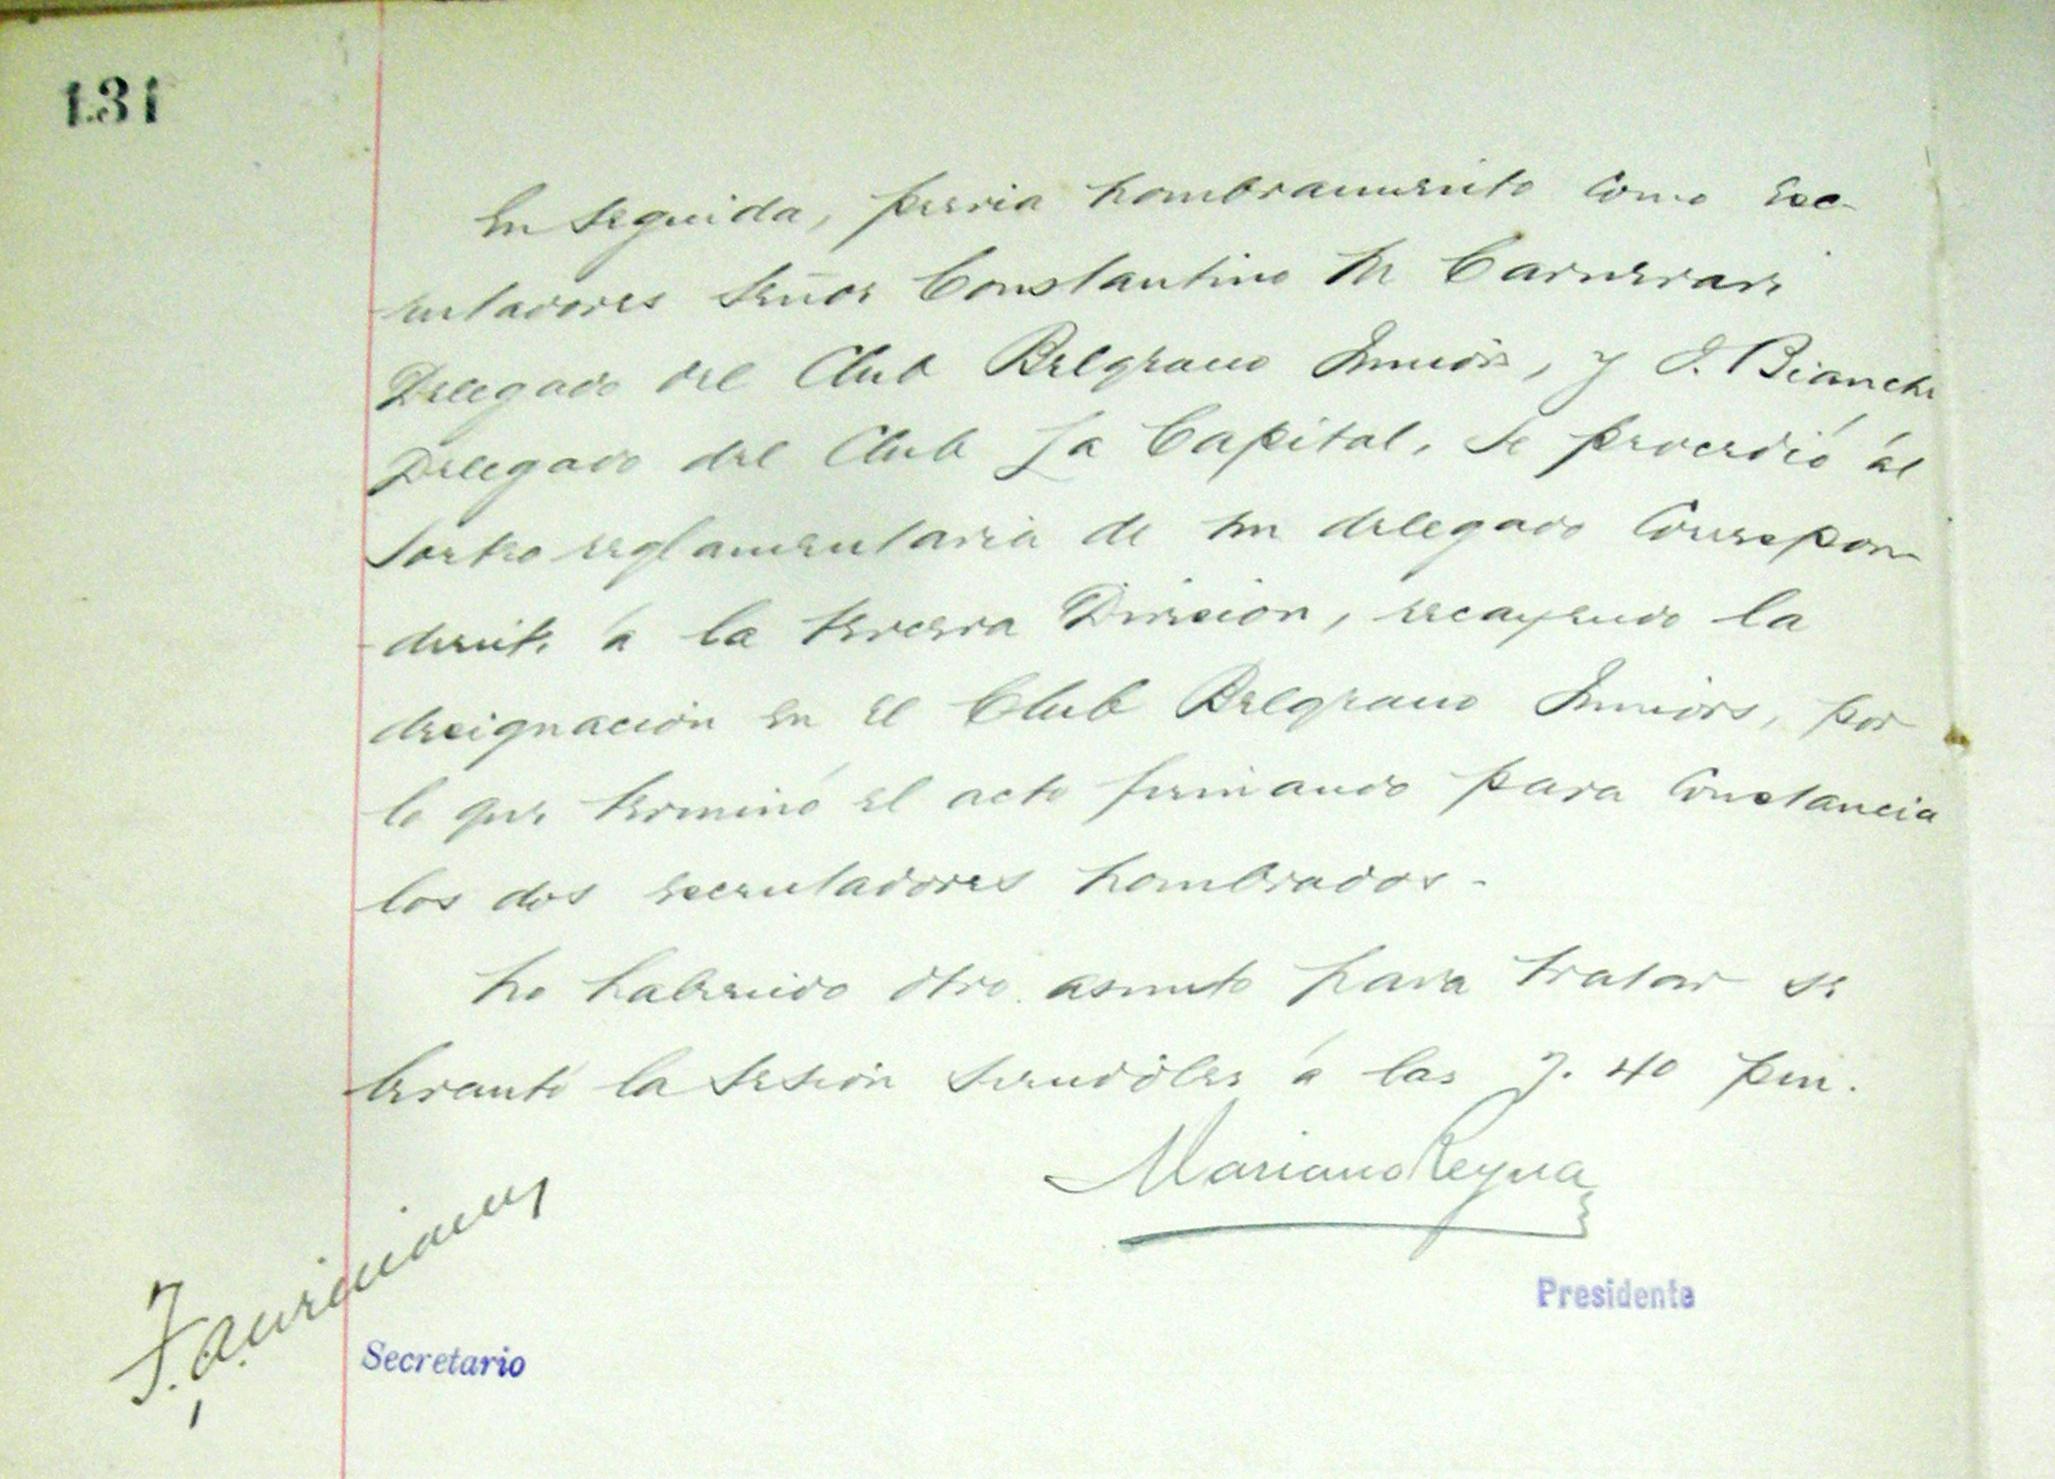 131
En seguida, previa nombramiento como esc-
rutadores Señor Constantino M
Delegado del Club Belgrano Juniors, y J. Bianchi
Delegado del Club La Capital, se procedió ál
sorteo reglamentaria de un delegado Correspon
diente á la tercera Division, recayendo la
designación en el Club Belgrano Juniors, por
lo que terminó el acto firmando para Constancia
los dos escrutadores nombrados -
No habiendo otro asunto para tratar se
levantó la sesión siendo las á las 7. 40 pm.
Mariano Reyna
Presidente
Secretario